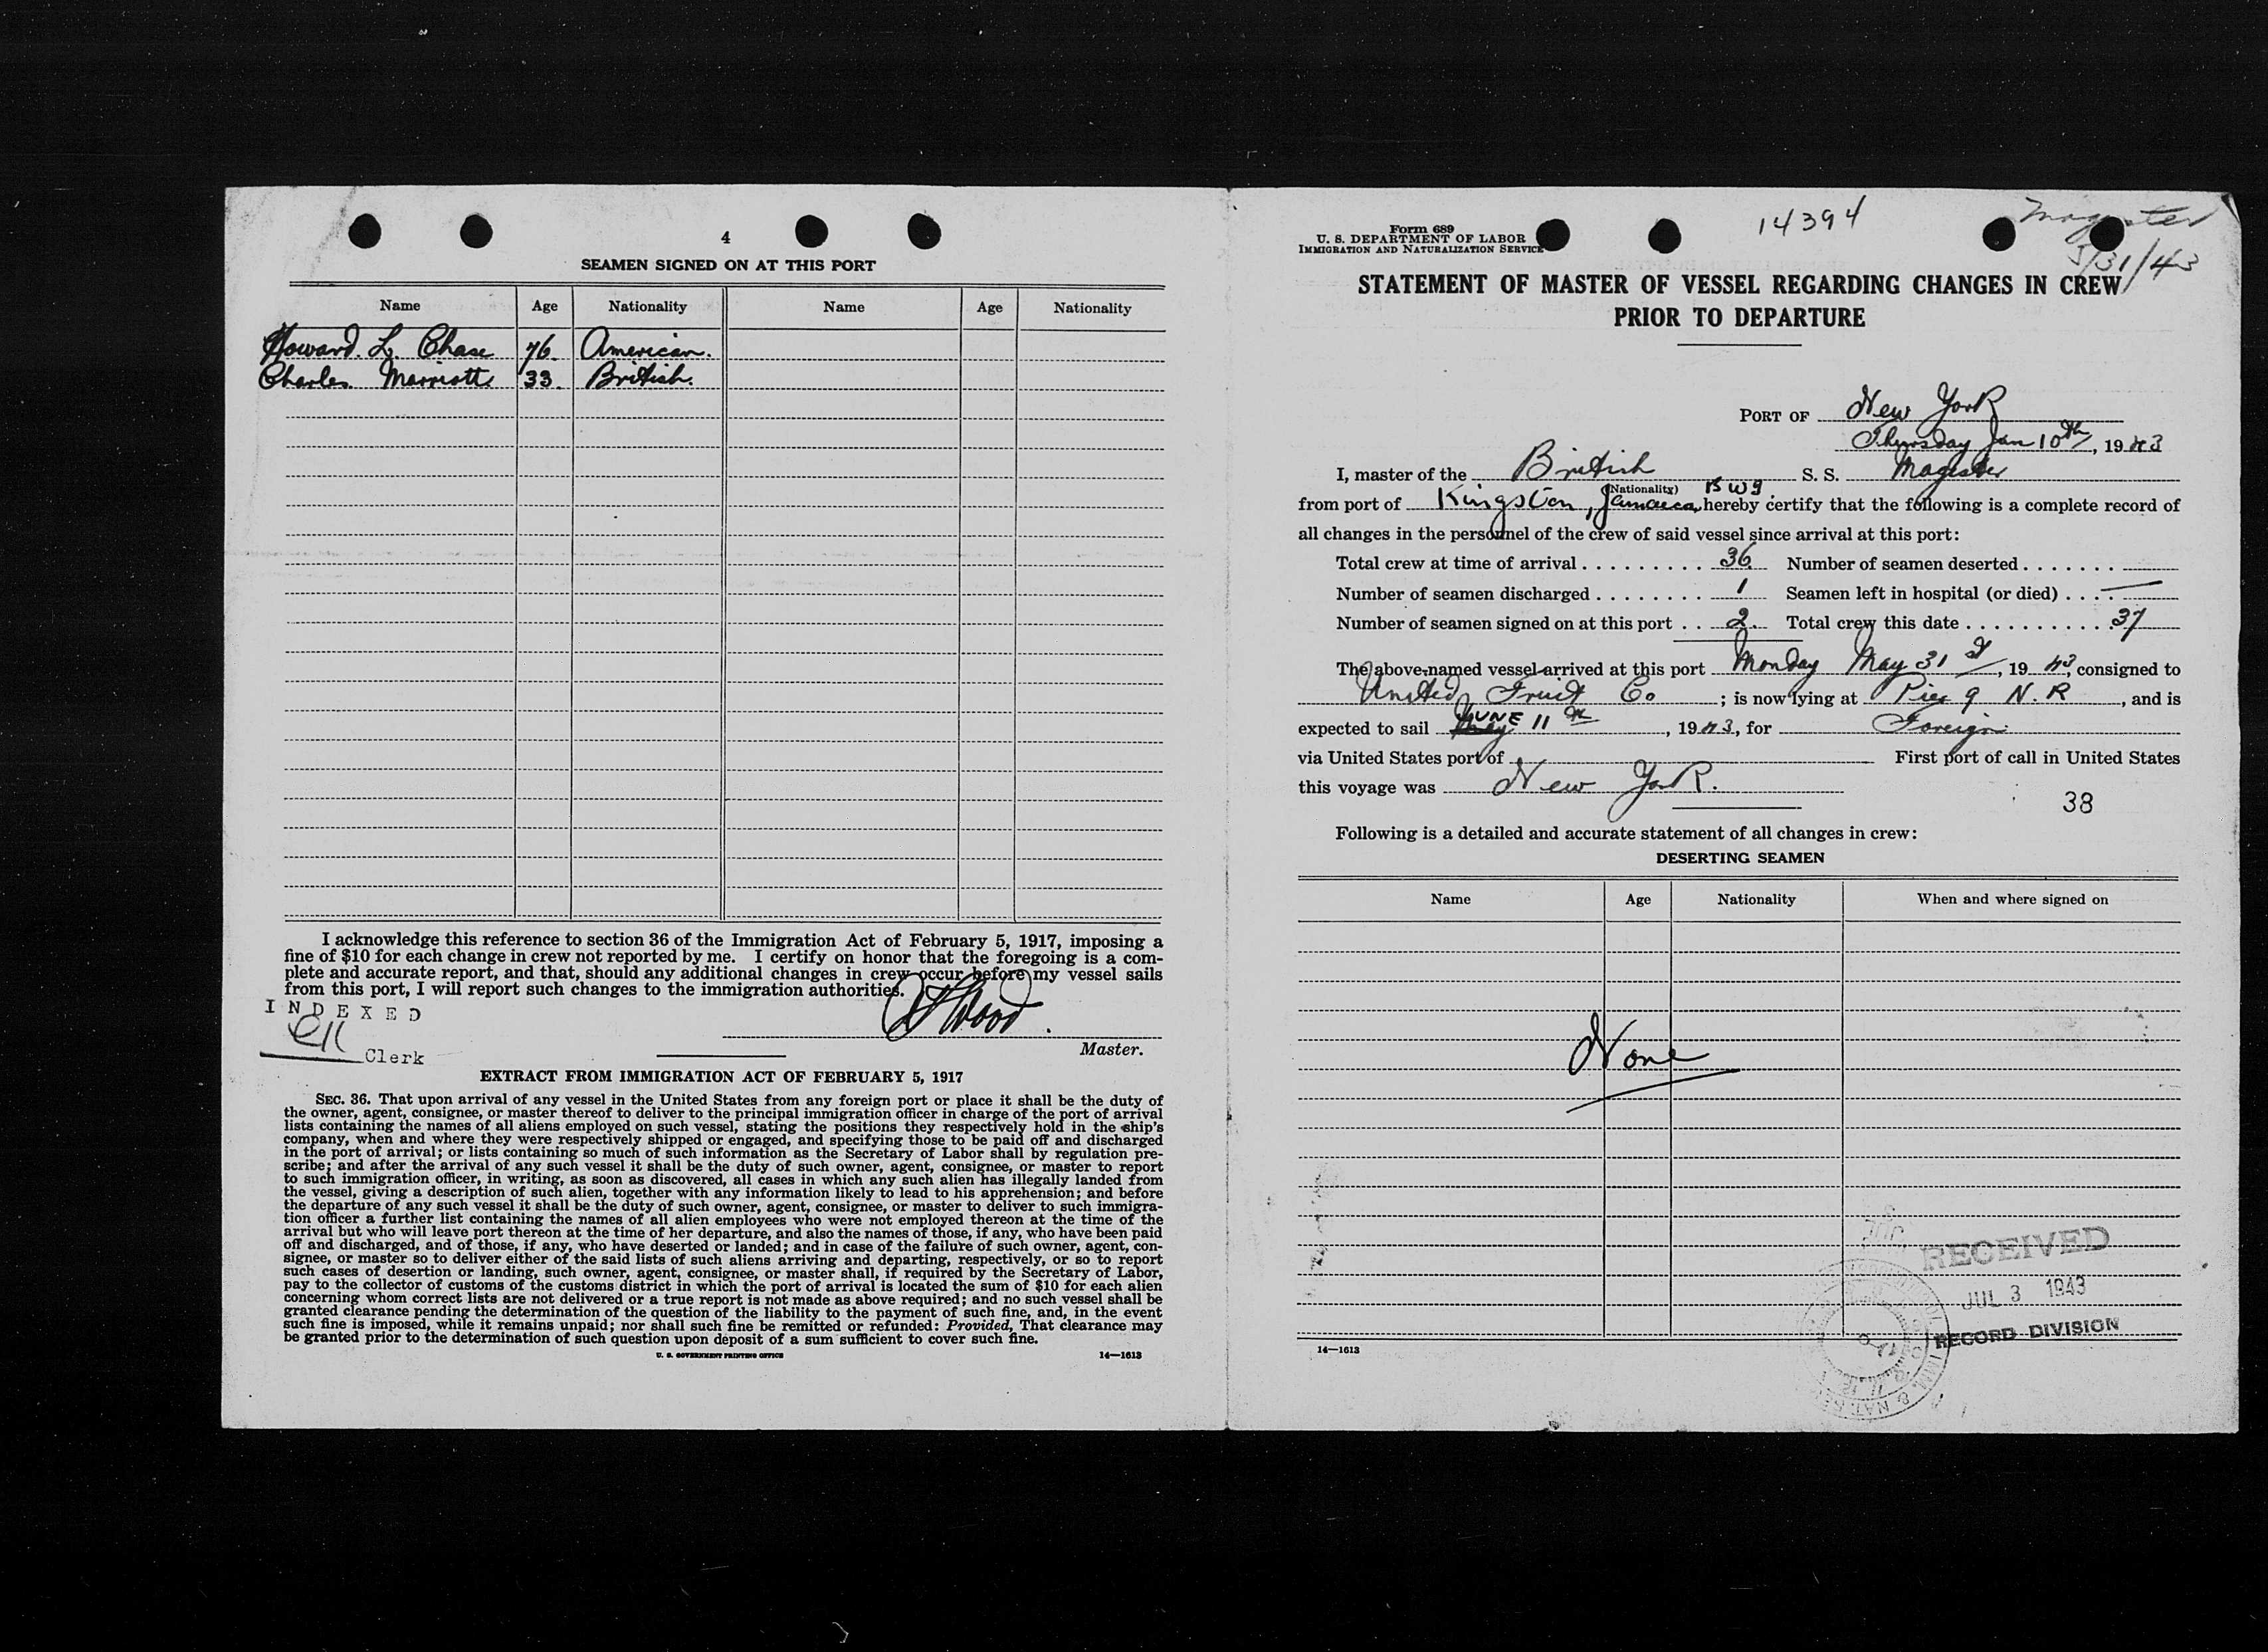 4
SEAMEN SIGNED ON AT THIS PORT
Name Age Nationality Name Age Nationality
Howard. L. Chase 76. American.
Charles Marriott 33. British.
I acknowledge this reference to section 36 of the Immigration Act of February 5, 1917, imposing a
fine of $10 for each change in crew not reported by me. I certify on honor that the foregoing is a com-
plete and accurate report, and that, should any additional changes in crew occur before my vessel sails
from this port, I will report such changes to the immigration authorities.
INDEXED
Wood.
Clerk
Master.
EXTRACT FROM IMMIGRATION ACT OF FEBRUARY 5, 1917
SEC. 36. That upon arrival of any vessel in the United States from any foreign port or place it shall be the duty of
the owner, agent, consignee, or master thereof to deliver to the principal immigration officer in charge of the port of arrival
lists containing the names of all aliens employed on such vessel, stating the positions they respectively hold in the ship's
company, when and where they were respectively shipped or engaged, and specifying those to be paid off and discharged
in the port of arrival; or lists containing so much of such information as the Secretary of Labor shall by regulation pre-
scribe; and after the arrival of any such vessel it shall be the duty of such owner, agent, consignee, or master to report
to such immigration officer, in writing, as soon as discovered, all cases in which any such alien has illegally landed from
the vessel, giving a description of such alien, together with any information likely to lead to his apprehension; and before
the departure of any such vessel it shall be the duty of such owner, agent, consignee, or master to deliver to such immigra-
tion officer a further list containing the names of all alien employees who were not employed thereon at the time of the
arrival but who will leave port thereon at the time of her departure, and also the names of those, if any, who have been paid
off and discharged, and of those, if any, who have deserted or landed; and in case of the failure of such owner, agent, con-
signee, or master so to deliver either of the said lists of such aliens arriving and departing, respectively, or so to report
such cases of desertion or landing, such owner, agent, consignee, or master shall, if required by the Secretary of Labor,
pay to the collector of customs of the customs district in which the port of arrival is located the sum of $10 for each alien
concerning whom correct lists are not delivered or a true report is not made as above required; and no such vessel shall be
granted clearance pending the determination of the question of the liability to the payment of such fine, and, in the event
such fine is imposed, while it remains unpaid; nor shall such fine be remitted or refunded: Provided, That clearance may
be granted prior to the determination of such question upon deposit of a sum sufficient to cover such fine.
U. S. GOVERNMENT PRINTING OFFICE 14—1613
Form 689
U. S. DEPARTMENT OF LABOR
IMMIGRATION AND NATURALIZATION SERVICE
14394
Magister
5/31/43
STATEMENT OF MASTER OF VESSEL REGARDING CHANGES IN CREW
PRIOR TO DEPARTURE
PORT OF New York
Thursday Jan 10th, 1943
I, master of the British S. S. Magister
(Nationality)
from port of Kingston, Jamaica, BWI hereby certify that the following is a complete record of
all changes in the personnel of the crew of said vessel since arrival at this port:
Total crew at time of arrival . . . . . . . . . 36 Number of seamen deserted . . . . . . .
Number of seamen discharged . . . . . . . . 1 Seamen left in hospital (or died) . . . . —
Number of seamen signed on at this port . . 2. Total crew this date . . . . . . . . . . . 37
The above-named vessel arrived at this port Monday May 31st, 1943, consigned to
United Fruit Co ; is now lying at Pier 9 N. R , and is
expected to sail JUNE 11th , 1943, for Foreign
via United States port of First port of call in United States
this voyage was New York.
38
Following is a detailed and accurate statement of all changes in crew:
DESERTING SEAMEN
Name Age Nationality When and where signed on
None
RECEIVED
JUL 3 1943
RECORD DIVISION
14—1613